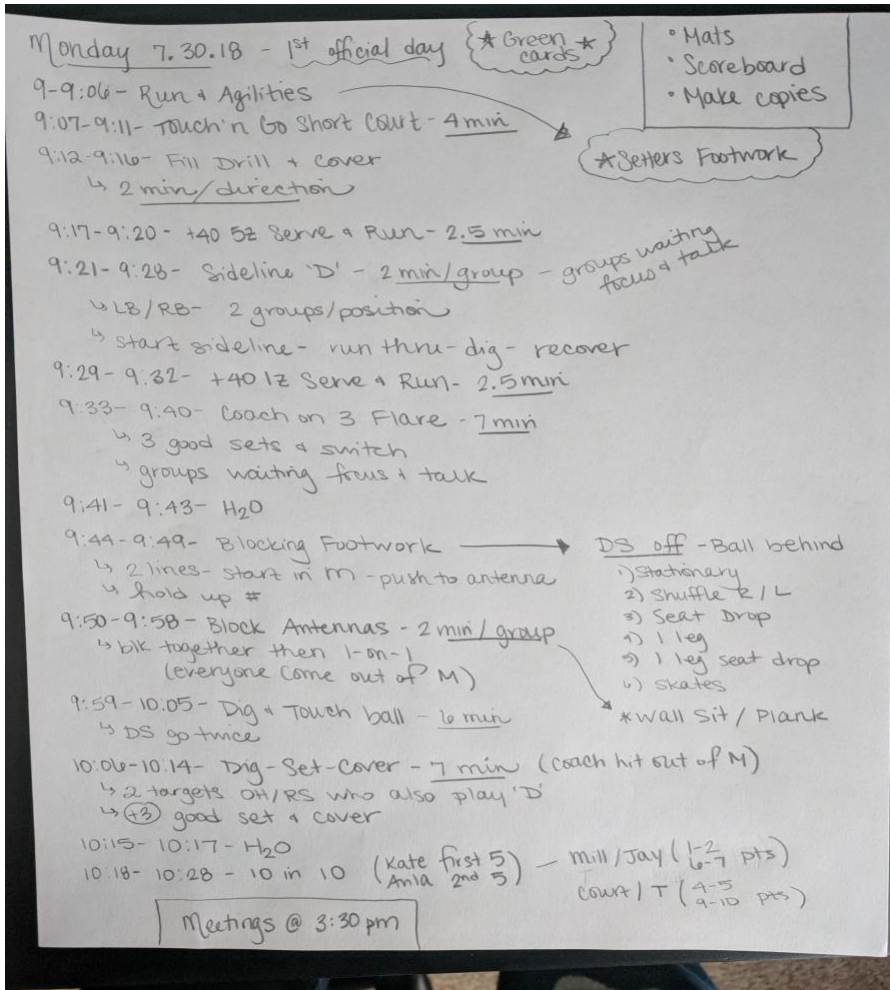 Monday 7.30.18 - 1st official day
* Green *
cards
• Mats
• Scoreboard
• Make copies
9-9:06- Run & Agilities
9:07-9:11- Touch'n Go Short Court - 4min
* Setters Footwork
9:12-9:16- Fill Drill & cover
↳ 2 min/direction
9:17-9:20- +40 5z Serve & Run- 2.5 min
9:21-9:28- Sideline 'D' - 2 min/group - groups waiting
focus & talk
↳ LB/RB- 2 groups/position
↳ start sideline- run thru- dig- recover
9:29- 9:32- +40 1z Serve & Run- 2.5min
9:33- 9:40- Coach on 3 Flare - 7min
↳ 3 good sets & switch
↳ groups waiting focus & talk
9:41- 9:43- H2O
9:44-9:49- Blocking Footwork → DS off - Ball behind
↳ 2 lines- start in m - push to antenna
↳ hold up #
1) Stationary
2) Shuffle R/L
3) Seat Drop
4) 1 leg
5) 1 leg seat drop
6) skates
* Wall Sit / Plank
9:50-9:58- Block Antennas - 2 min/group
↳ blk together then 1-on-1
(everyone come out of M)
9:59-10:05- Dig & Touch ball - 6 min
↳ DS go twice
10:06-10:14- Dig-Set-Cover - 7 min (coach hit out of M)
↳ 2 targets OH/RS who also play 'D'
↳ +3 good set & cover
10:15- 10:17- H2O
10:18- 10:28- 10 in 10 (Kate first 5) - Mill/Jay (1-2 pts)
(Ania 2nd 5) 6-7
Court/T (4-5 pts)
9-10
Meetings @ 3:30 pm